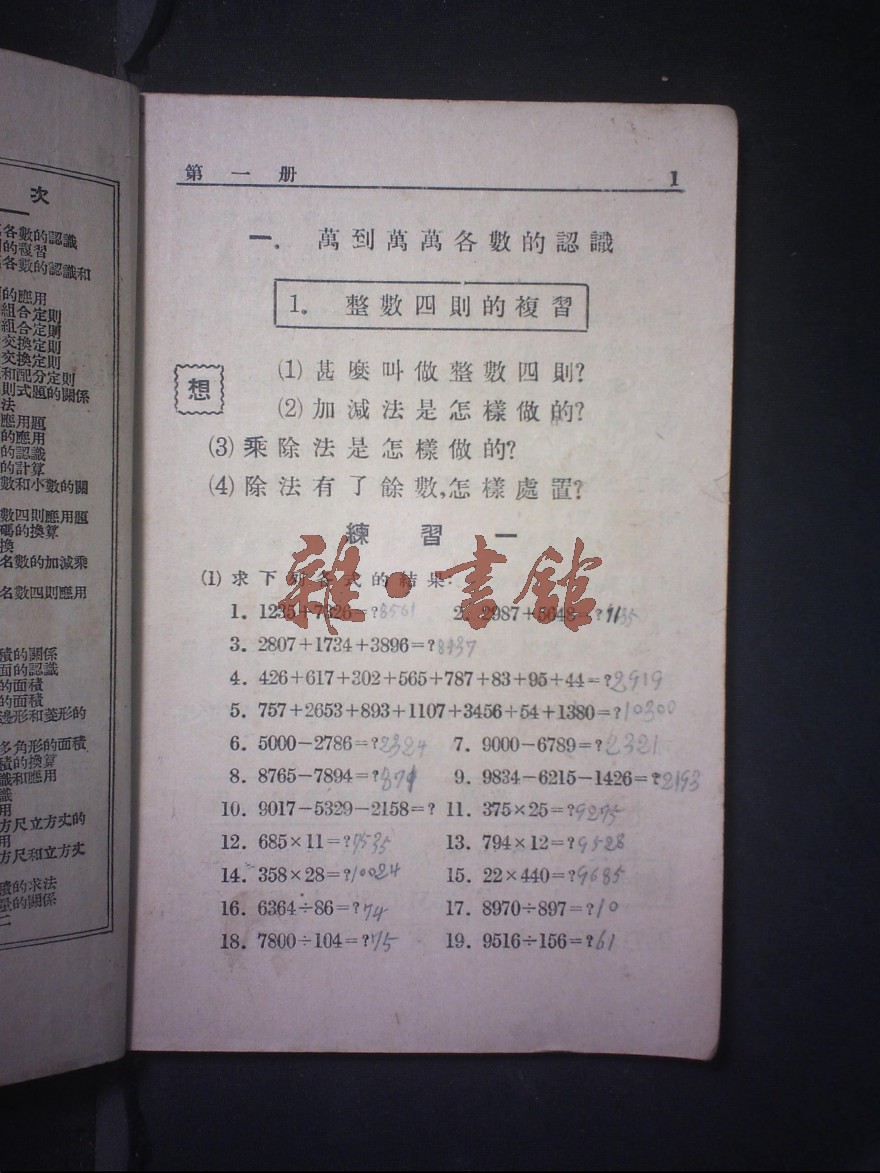 次
各數的認識
的複習
各數的認識和
的應用
組合定則
組合定則
交換定則
交換定則
和配分定則
則式題的關係
法
應用題
的應用
的認識
的計算
數和小數的關
數四則應用題
碼的換算
換
名數的加減乘
名數四則應用
積的關係
面的認識
的面積
的面積
邊形和菱形的
多角形的面積
積的換算
識和應用
識
用
方尺立方丈的
用
方尺和立方丈
積的求法
量的關係
二
第一册 1
一. 萬到萬萬各數的認識
1. 整數四則的複習
想
(1) 甚麼叫做整數四則?
(2) 加減法是怎樣做的?
(3) 乘除法是怎樣做的?
(4) 除法有了餘數,怎樣處置?
練習一
雜·書館
(1) 求下列各式的結果:
1. 1235+7326=?8561 2. 2987+5648=?
3. 2807+1734+3896=?8437
4. 426+617+302+565+787+83+95+44=?2919
5. 757+2653+893+1107+3456+54+1380=?10300
6. 5000-2786=?2324 7. 9000-6789=?2321
8. 8765-7894=?871 9. 9834-6215-1426=?2193
10. 9017-5329-2158=? 11. 375×25=?9275
12. 685×11=?7535 13. 794×12=?9528
14. 358×28=?10024 15. 22×440=?9685
16. 6364÷86=?74 17. 8970÷897=?10
18. 7800÷104=?75 19. 9516÷156=?61